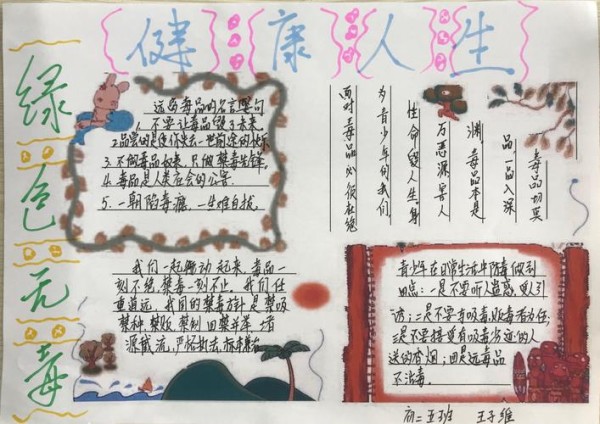 健康人生
绿色无毒
远离毒品的名言警句
1、不要让毒品毁了未来
2品尝的是
3、不做毒品奴隶、只做禁毒先锋
4、毒品是人类社会的公害
5、一朝陷毒瘾，一生难自拔
毒品切莫
品，一品入深
渊，毒品本是
万恶源，害人
性命毁人生，身
为青少年的我们
面对毒品必须杜绝
我们一起行动起来，毒品一
刻不绝，禁毒一刻不止，我们任
重道远，我国的禁毒方针是禁吸
禁种、禁贩、禁制、四禁并举、堵
源截流，严格执法、标本兼治
青少年在日常生活中防毒做到
四点：一是不要听人蛊惑，受人引
诱；二是不要有吸毒、贩毒
三是不要接受有吸毒劣迹的人
送的香烟；四是远毒品
不沾毒
初二五班 王子维